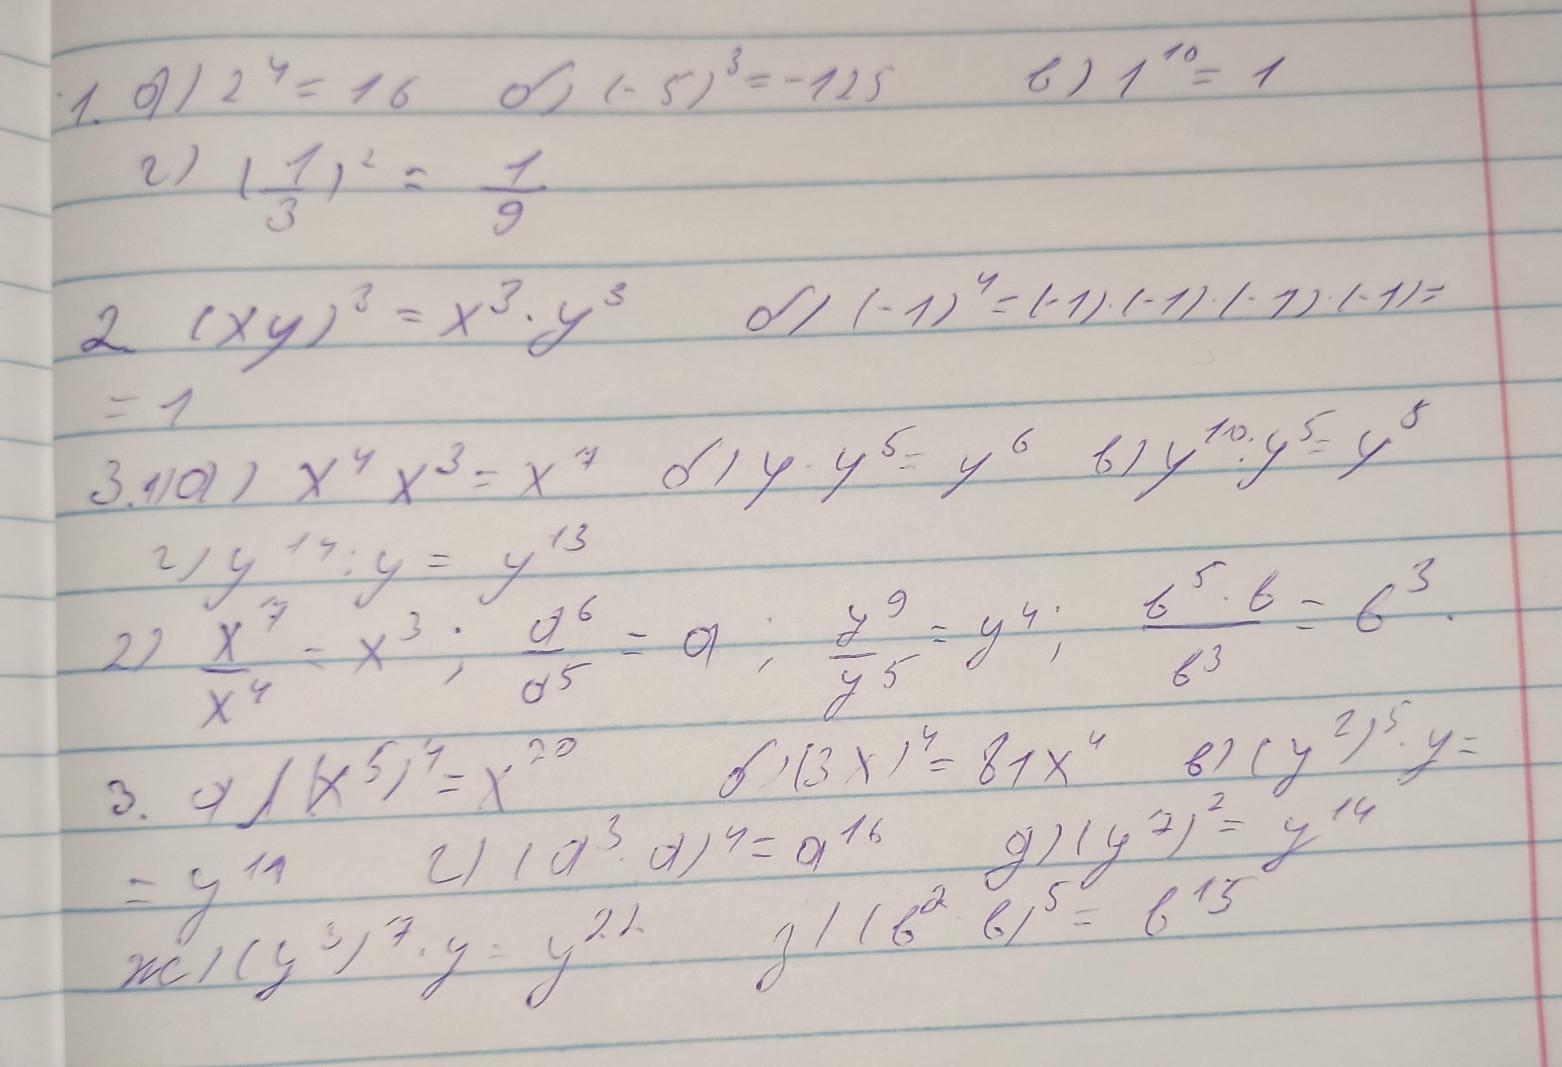 1. а) 2⁴ = 16 б) (-5)³ = -125 в) 1¹⁰ = 1
г) (1/3)² = 1/9
2 (xy)³ = x³ · y³ б) (-1)⁴ = (-1) · (-1) · (-1) · (-1) =
= 1
3. 1) а) x⁴ x³ = x⁷ б) y · y⁵ = y⁶ в) y¹⁰ : y⁵ = y⁵
г) y¹⁴ : y = y¹³
2) x⁷/x⁴ = x³ ; a⁶/a⁵ = a ; y⁹/y⁵ = y⁴ ; (b⁵ · b)/b³ = b³.
3. а) (x⁵)⁴ = x²⁰ б) (3x)⁴ = 81x⁴ в) (y²)⁵ · y =
= y¹¹ г) (a³ · a)⁴ = a¹⁶ д) (y⁷)² = y¹⁴
ж) (y³)⁷ · y = y²² з) (b² · b)⁵ = b¹⁵